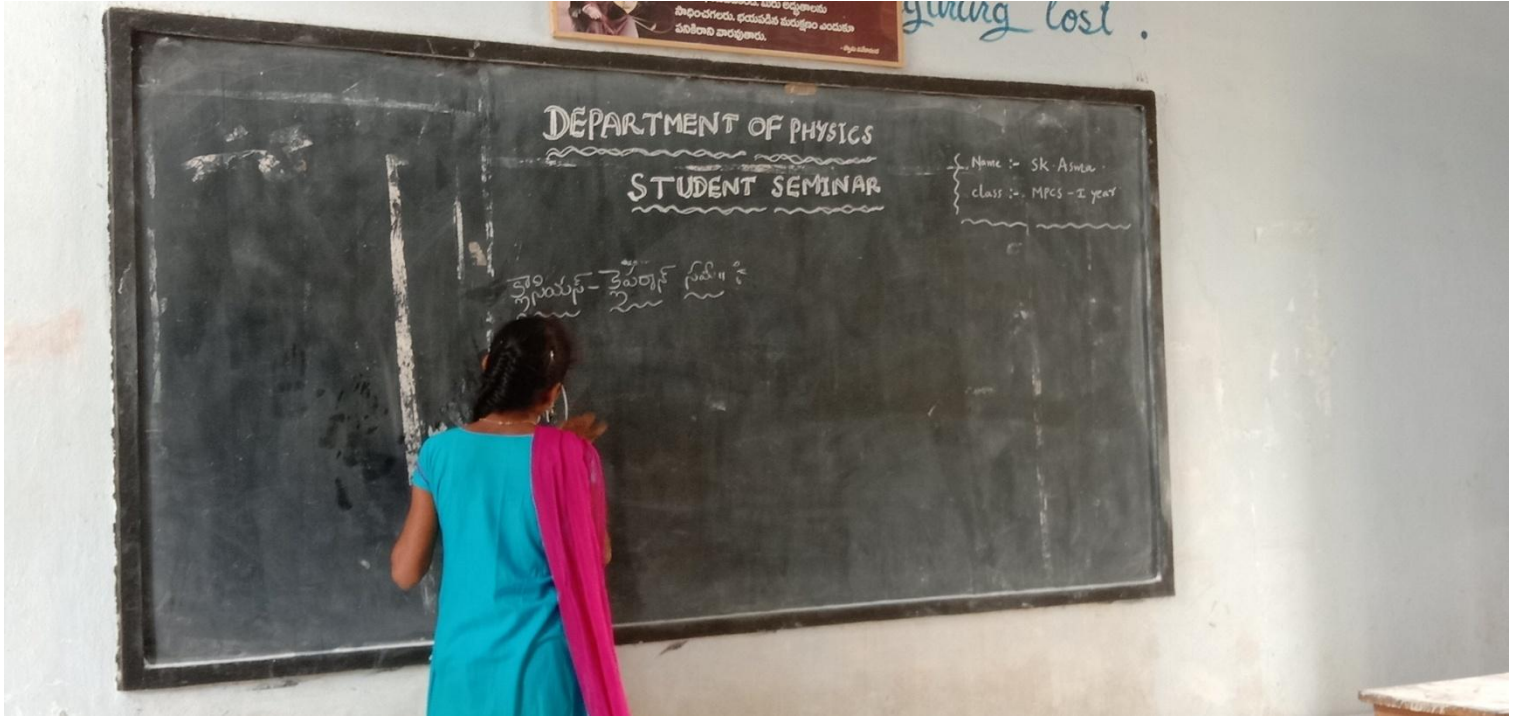 సాధించగలరు. భయపడిన మరుక్షణం ఎందుకూ
పనికిరాని వారవుతారు.
lost .
DEPARTMENT OF PHYSICS
STUDENT SEMINAR
Name :- SK. Asma
class :- MPCS - I year
క్లాసియస్ - క్లైపరాన్ సమీ॥ :-